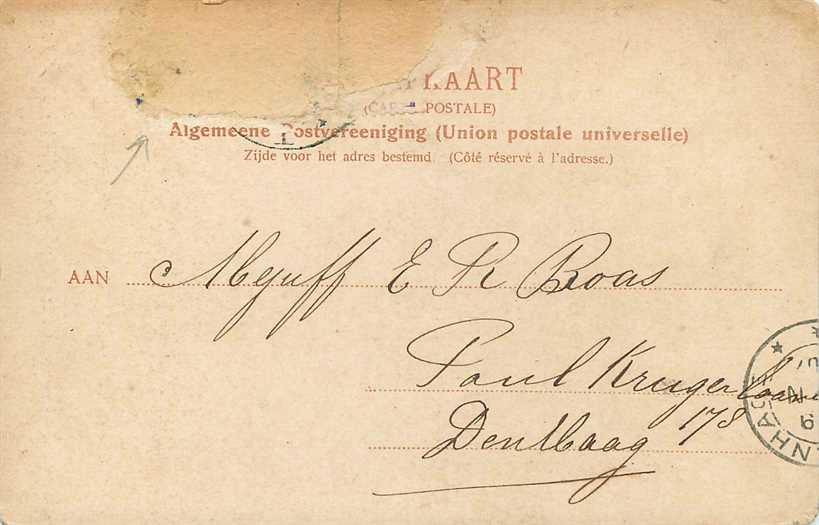 KAART
POSTALE)
Algemeene Postvereeniging (Union postale universelle)
Zijde voor het adres bestemd. (Côté réservé à l'adresse.)
AAN Mejuff E R Roos
Paul Krugerlaan
178
Den Haag
NHAGE